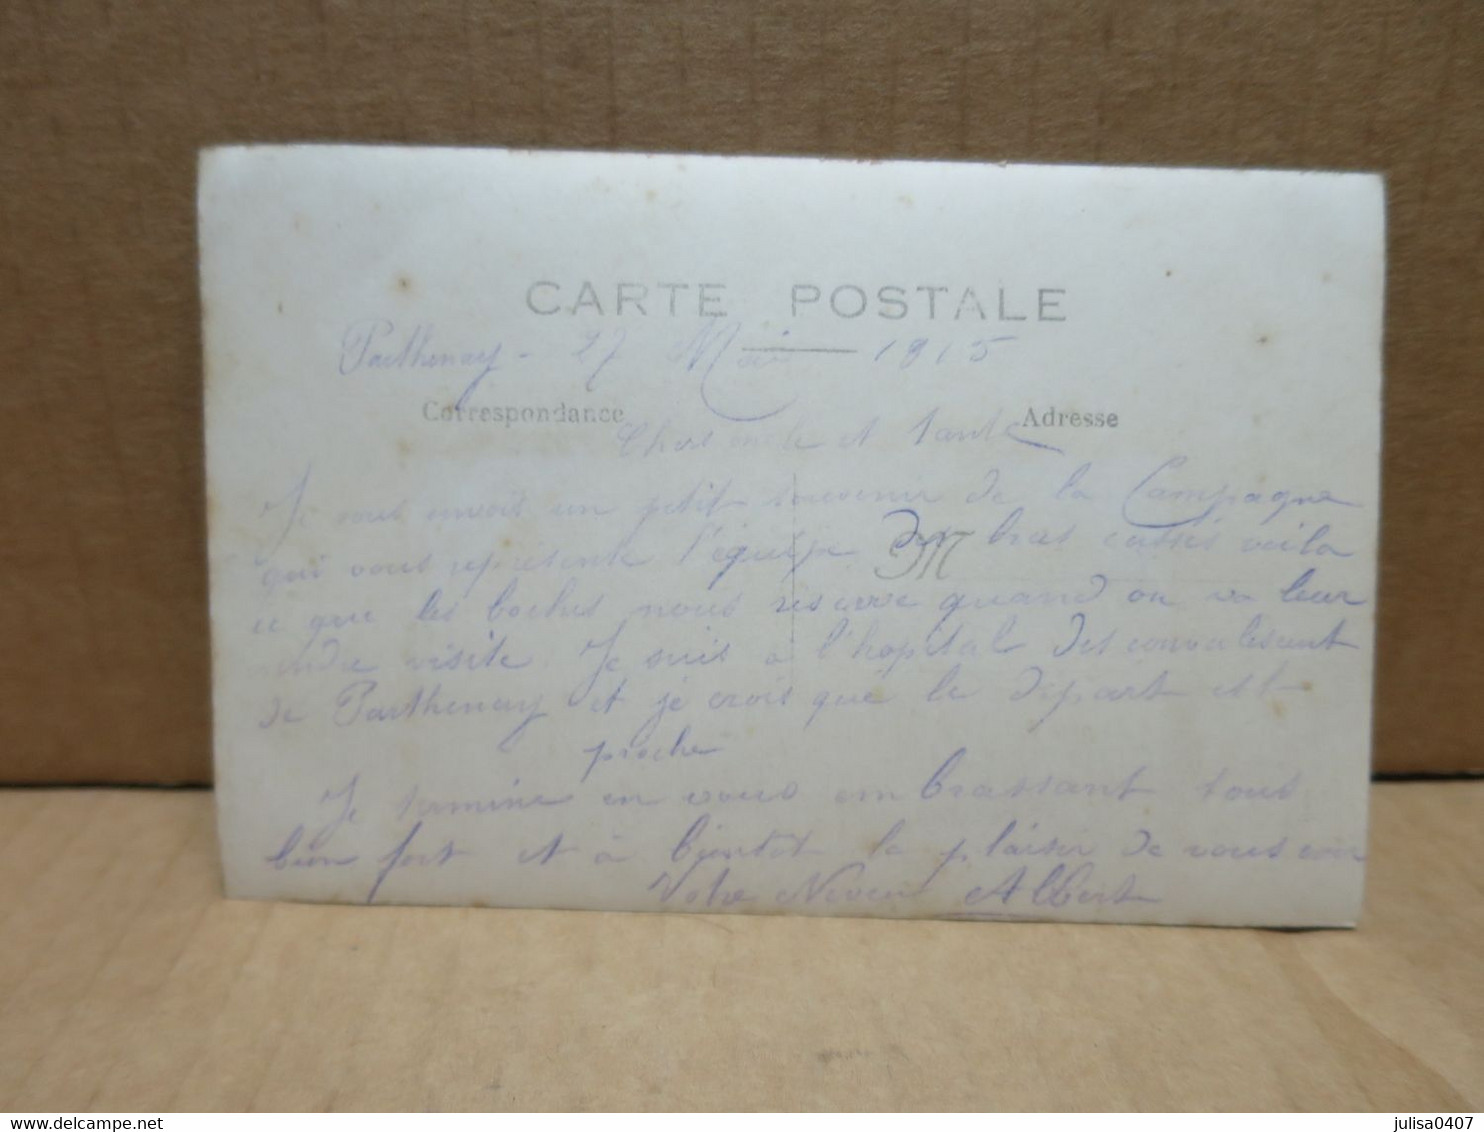 CARTE POSTALE
Parthenay - 27 Mai 1915
Correspondance Adresse
Chers oncle et tante
Je vous envois un petit souvenir de la Campagne
qui vous représente l'équipe des bras cassés voila
ce que les boches nous reserve quand on va leur
rendre visite. Je suis à l'hopital des convalescent
de Parthenay et je crois que le départ est
proche
Je termine en vous embrassant tous
bien fort et à bientot le plaisir de vous voir
Votre Neveu Albert
delcampe.net
julisa0407